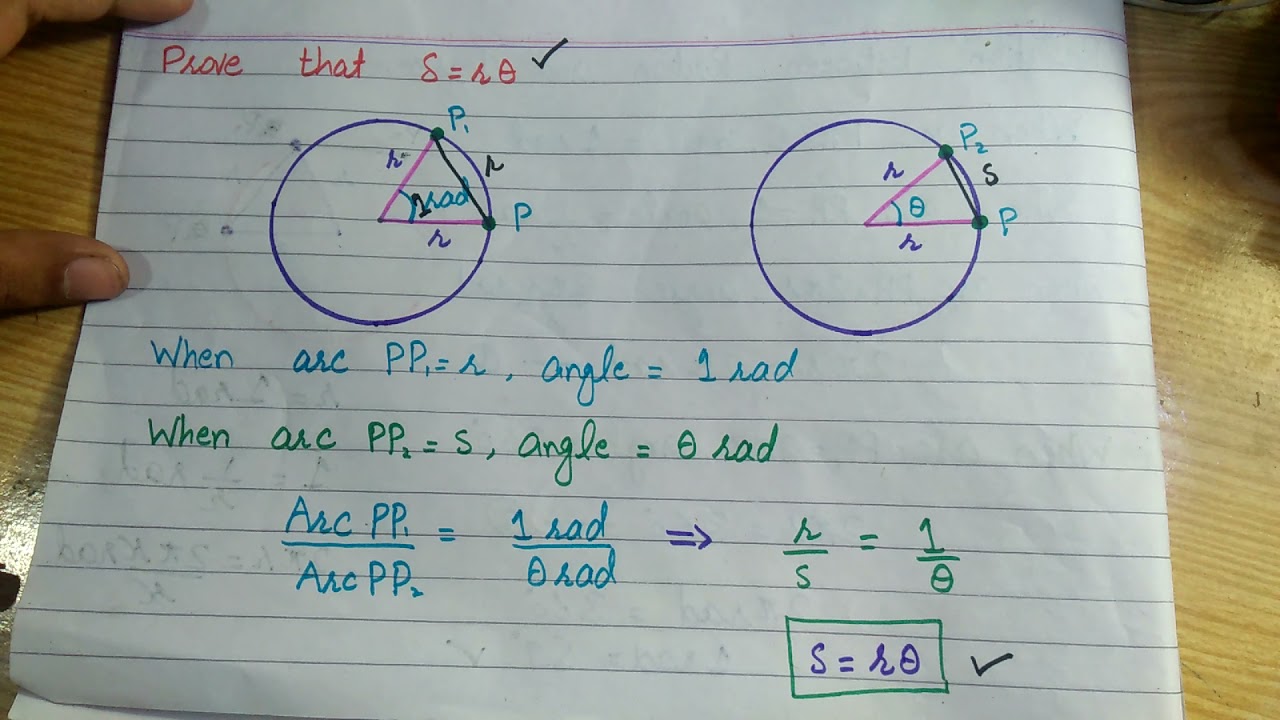 Prove that S = rθ ✓
P₁
r
r
1 rad
P
r
P₂
r
S
θ
P
r
When arc PP₁ = r, angle = 1 rad
When arc PP₂ = S, angle = θ rad
Arc PP₁ / Arc PP₂ = 1 rad / θ rad ⇒ r / S = 1 / θ
S = rθ ✓